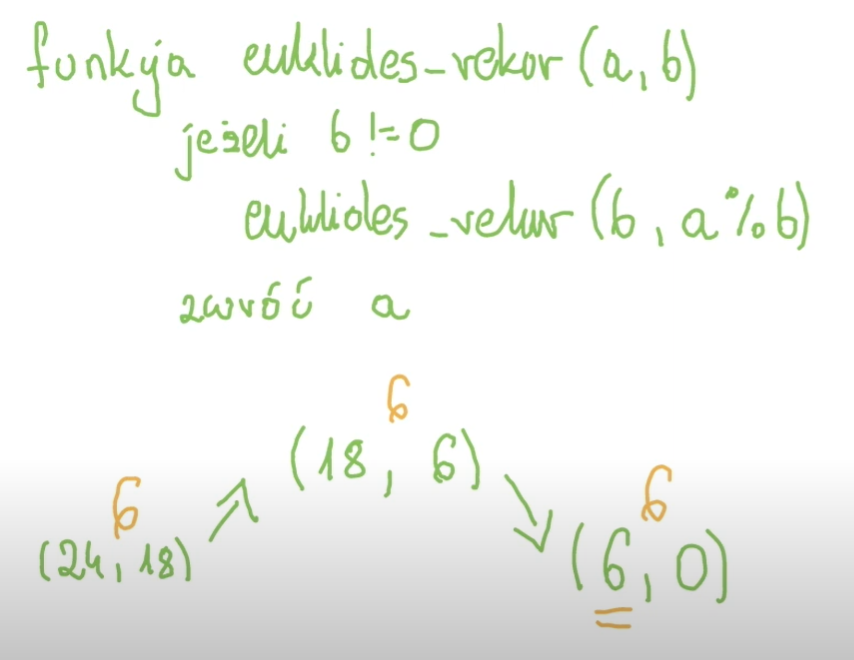 funkcja euklides_rekur (a, b)
jeżeli b != 0
euklides_rekur (b, a % b)
zwróć a
6
(18, 6)
6
6
(24, 18)
(6, 0)